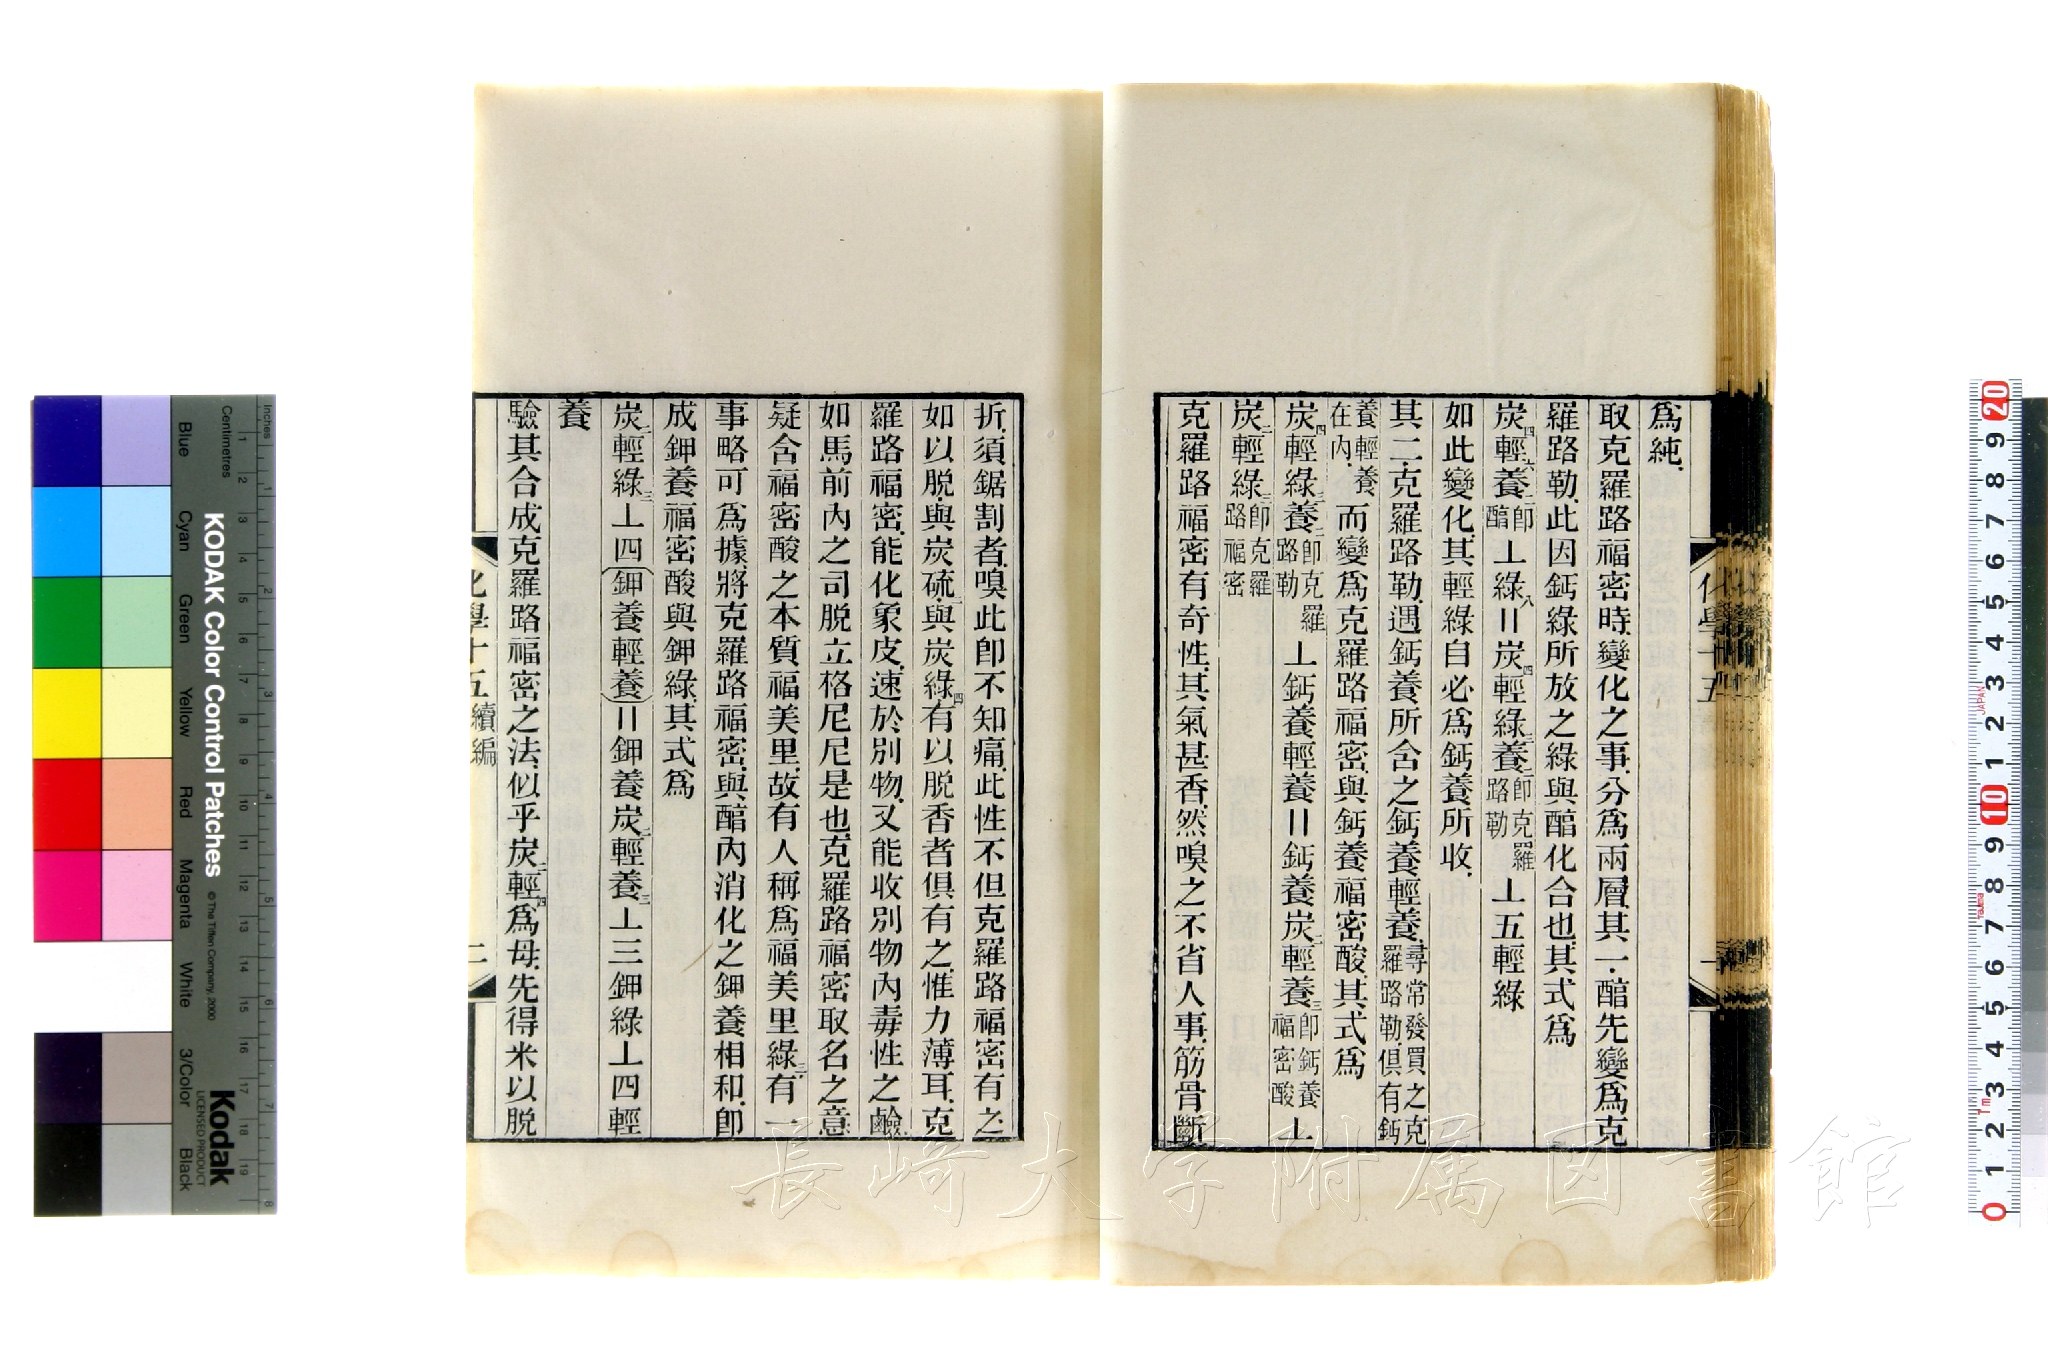 爲純.
取克羅路福密時變化之事分爲兩層其一.醕先變爲克
羅路勒.此因鈣綠所放之綠與醕化合也.其式爲
炭四輕六養二卽醕⊥綠八〢炭四輕綠三養二卽克羅路勒⊥五輕綠
如此變化.其輕綠自必爲鈣養所收.
其二.克羅路勒遇鈣養所含之鈣養輕養.尋常發買之克羅路勒.俱有鈣
養輕養在內.而變爲克羅路福密.與鈣養福密酸.其式爲
炭四輕綠三養二卽克羅路勒⊥鈣養輕養〢鈣養炭二輕養三卽鈣養福密酸⊥
炭二輕綠三卽克羅路福密
克羅路福密有奇性.其氣甚香.然嗅之不省人事.筋骨斷
化學十五
一
折.須鋸割者.嗅此卽不知痛.此性不但克羅路福密有之
如以脫.與炭硫二.與炭綠四.有以脫香者俱有之.惟力薄耳.克
羅路福密.能化象皮.速於別物.又能收別物內毒性之鹼.
如馬前內之司脫立格尼尼是也.克羅路福密取名之意
疑含福密酸之本質福美里.故有人稱爲福美里綠三.有一
事略可爲據.將克羅路福密.與醕內消化之鉀養相和.卽
成鉀養福密酸與鉀綠.其式爲
炭二輕綠三⊥四(鉀養輕養)〢鉀養炭二輕養三⊥三鉀綠⊥四輕
養
驗其合成克羅路福密之法.似乎炭二輕四爲母.先得米以脫
化學十五 續編
二
長崎大学附属図書館
KODAK Color Control Patches
© The Tiffen Company, 2000
Kodak
LICENSED PRODUCT
Inches
Centimetres
Blue
Cyan
Green
Yellow
Red
Magenta
White
3/Color
Black